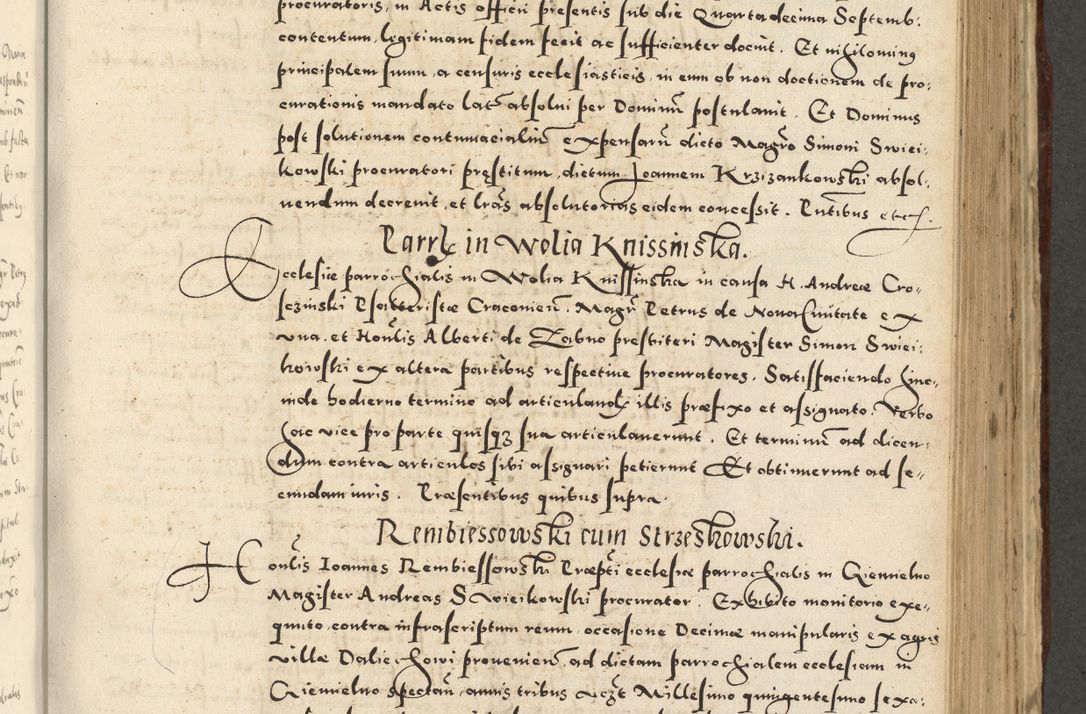 procuratoris, in Actis officii presentis sub die Quarta decima Septemb:
contentum, legitimam fidem fecit ac sufficienter docuit. Et nihilominus
principalem suum, a censuris ecclesiasticis, in eum ob non doctionem de pro,
curationis mandato lat absolui per Dominum postulauit. Et Dominus
post solutionem contumacialium expensarum dicto Magro Simoni Swiei,
kowski procuratori pręstitum, dictum Joannem Krzizankowski absol,
uendum decreuit, et lras absolutorias eidem concessit. Pntibus etc
Parrl in Wolia Knissinska.
Ecclesiæ parrochialis in Wolia Knissinska in causa H. Andreæ Cro,
sczinski Psalteristæ Cracouien. Magr Petrus de Noua Ciuitate ex
vna, et Honlis Alberti de Zabno presbiteri Magister Simon Swiei,
kowski ex altera partibus respectiue procuratores. Satisfaciendo hinc,
inde hodierno termino ad articuland illis præfixo et assignato. Verbo
hac vice pro parte quisque sua articulauerunt. Et terminum ad dicen,
dum contra articulos sibi assignari petierunt Et obtinuerunt ad se,
cundam iuris. Præsentibus quibus supra.
Rembiessowski cum Strzeskowski.
Honlis Ioannes Rembiessowski Præpti ecclesiæ parrochialis in Giemielno
Magister Andreas Swieikowski procurator. Exhibito monitorio exe,
quuto contra infrascriptum reum, occasione Decimæ manipularis ex agris
villæ Daliechowi prouenien, ad dictam parrochialem ecclesiam in
Giemielno spectan, annis tribus vczt Millesimo quingentesimo sexa,